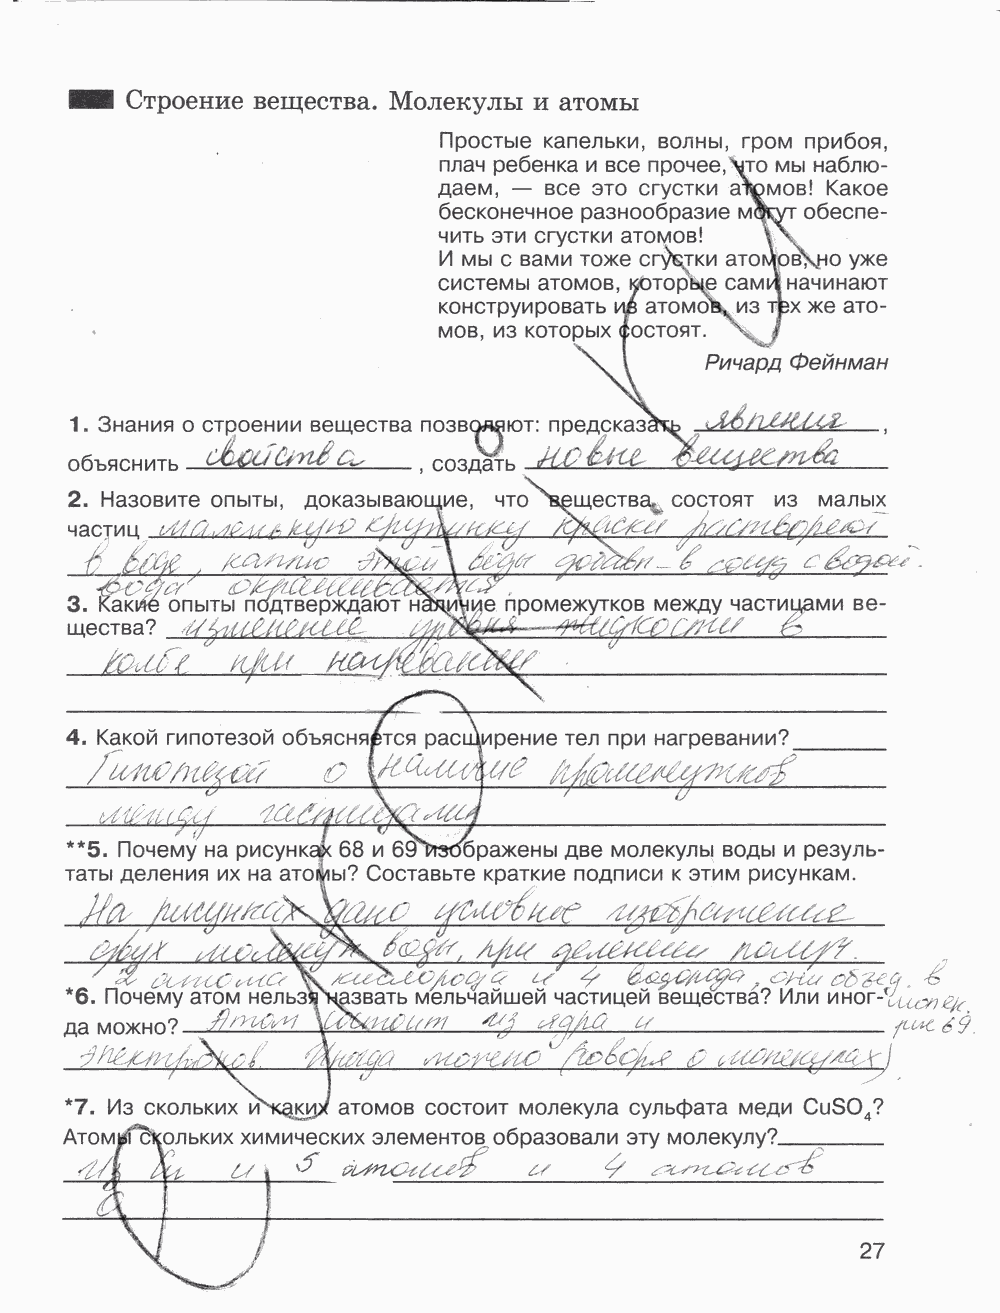 Строение вещества. Молекулы и атомы
Простые капельки, волны, гром прибоя,
плач ребенка и все прочее, что мы наблю-
даем, — все это сгустки атомов! Какое
бесконечное разнообразие могут обеспе-
чить эти сгустки атомов!
И мы с вами тоже сгустки атомов, но уже
системы атомов, которые сами начинают
конструировать из атомов, из тех же ато-
мов, из которых состоят.
Ричард Фейнман
1. Знания о строении вещества позволяют: предсказать явления ,
объяснить свойства , создать новые вещества
2. Назовите опыты, доказывающие, что вещества состоят из малых
частиц маленькую крупинку краски растворяют
в воде, каплю этой воды добавл- в сосуд с водой.
вода окрашивается.
3. Какие опыты подтверждают наличие промежутков между частицами ве-
щества? изменение уровня жидкости в
колбе при нагревании
4. Какой гипотезой объясняется расширение тел при нагревании?
Гипотезой о наличие промежутков
между частицами
**5. Почему на рисунках 68 и 69 изображены две молекулы воды и резуль-
таты деления их на атомы? Составьте краткие подписи к этим рисункам.
На рисунках дано условное изображение
двух молекул воды, при делении получ.
2 атома кислорода и 4 водорода, они объед. в
молек.
рис 69.
*6. Почему атом нельзя назвать мельчайшей частицей вещества? Или иног-
да можно? Атом состоит из ядра и
электронов. Иногда можно (говоря о молекулах).
*7. Из скольких и каких атомов состоит молекула сульфата меди CuSO4?
Атомы скольких химических элементов образовали эту молекулу?
Из Cu и S атомов и 4 атомов
O.
27